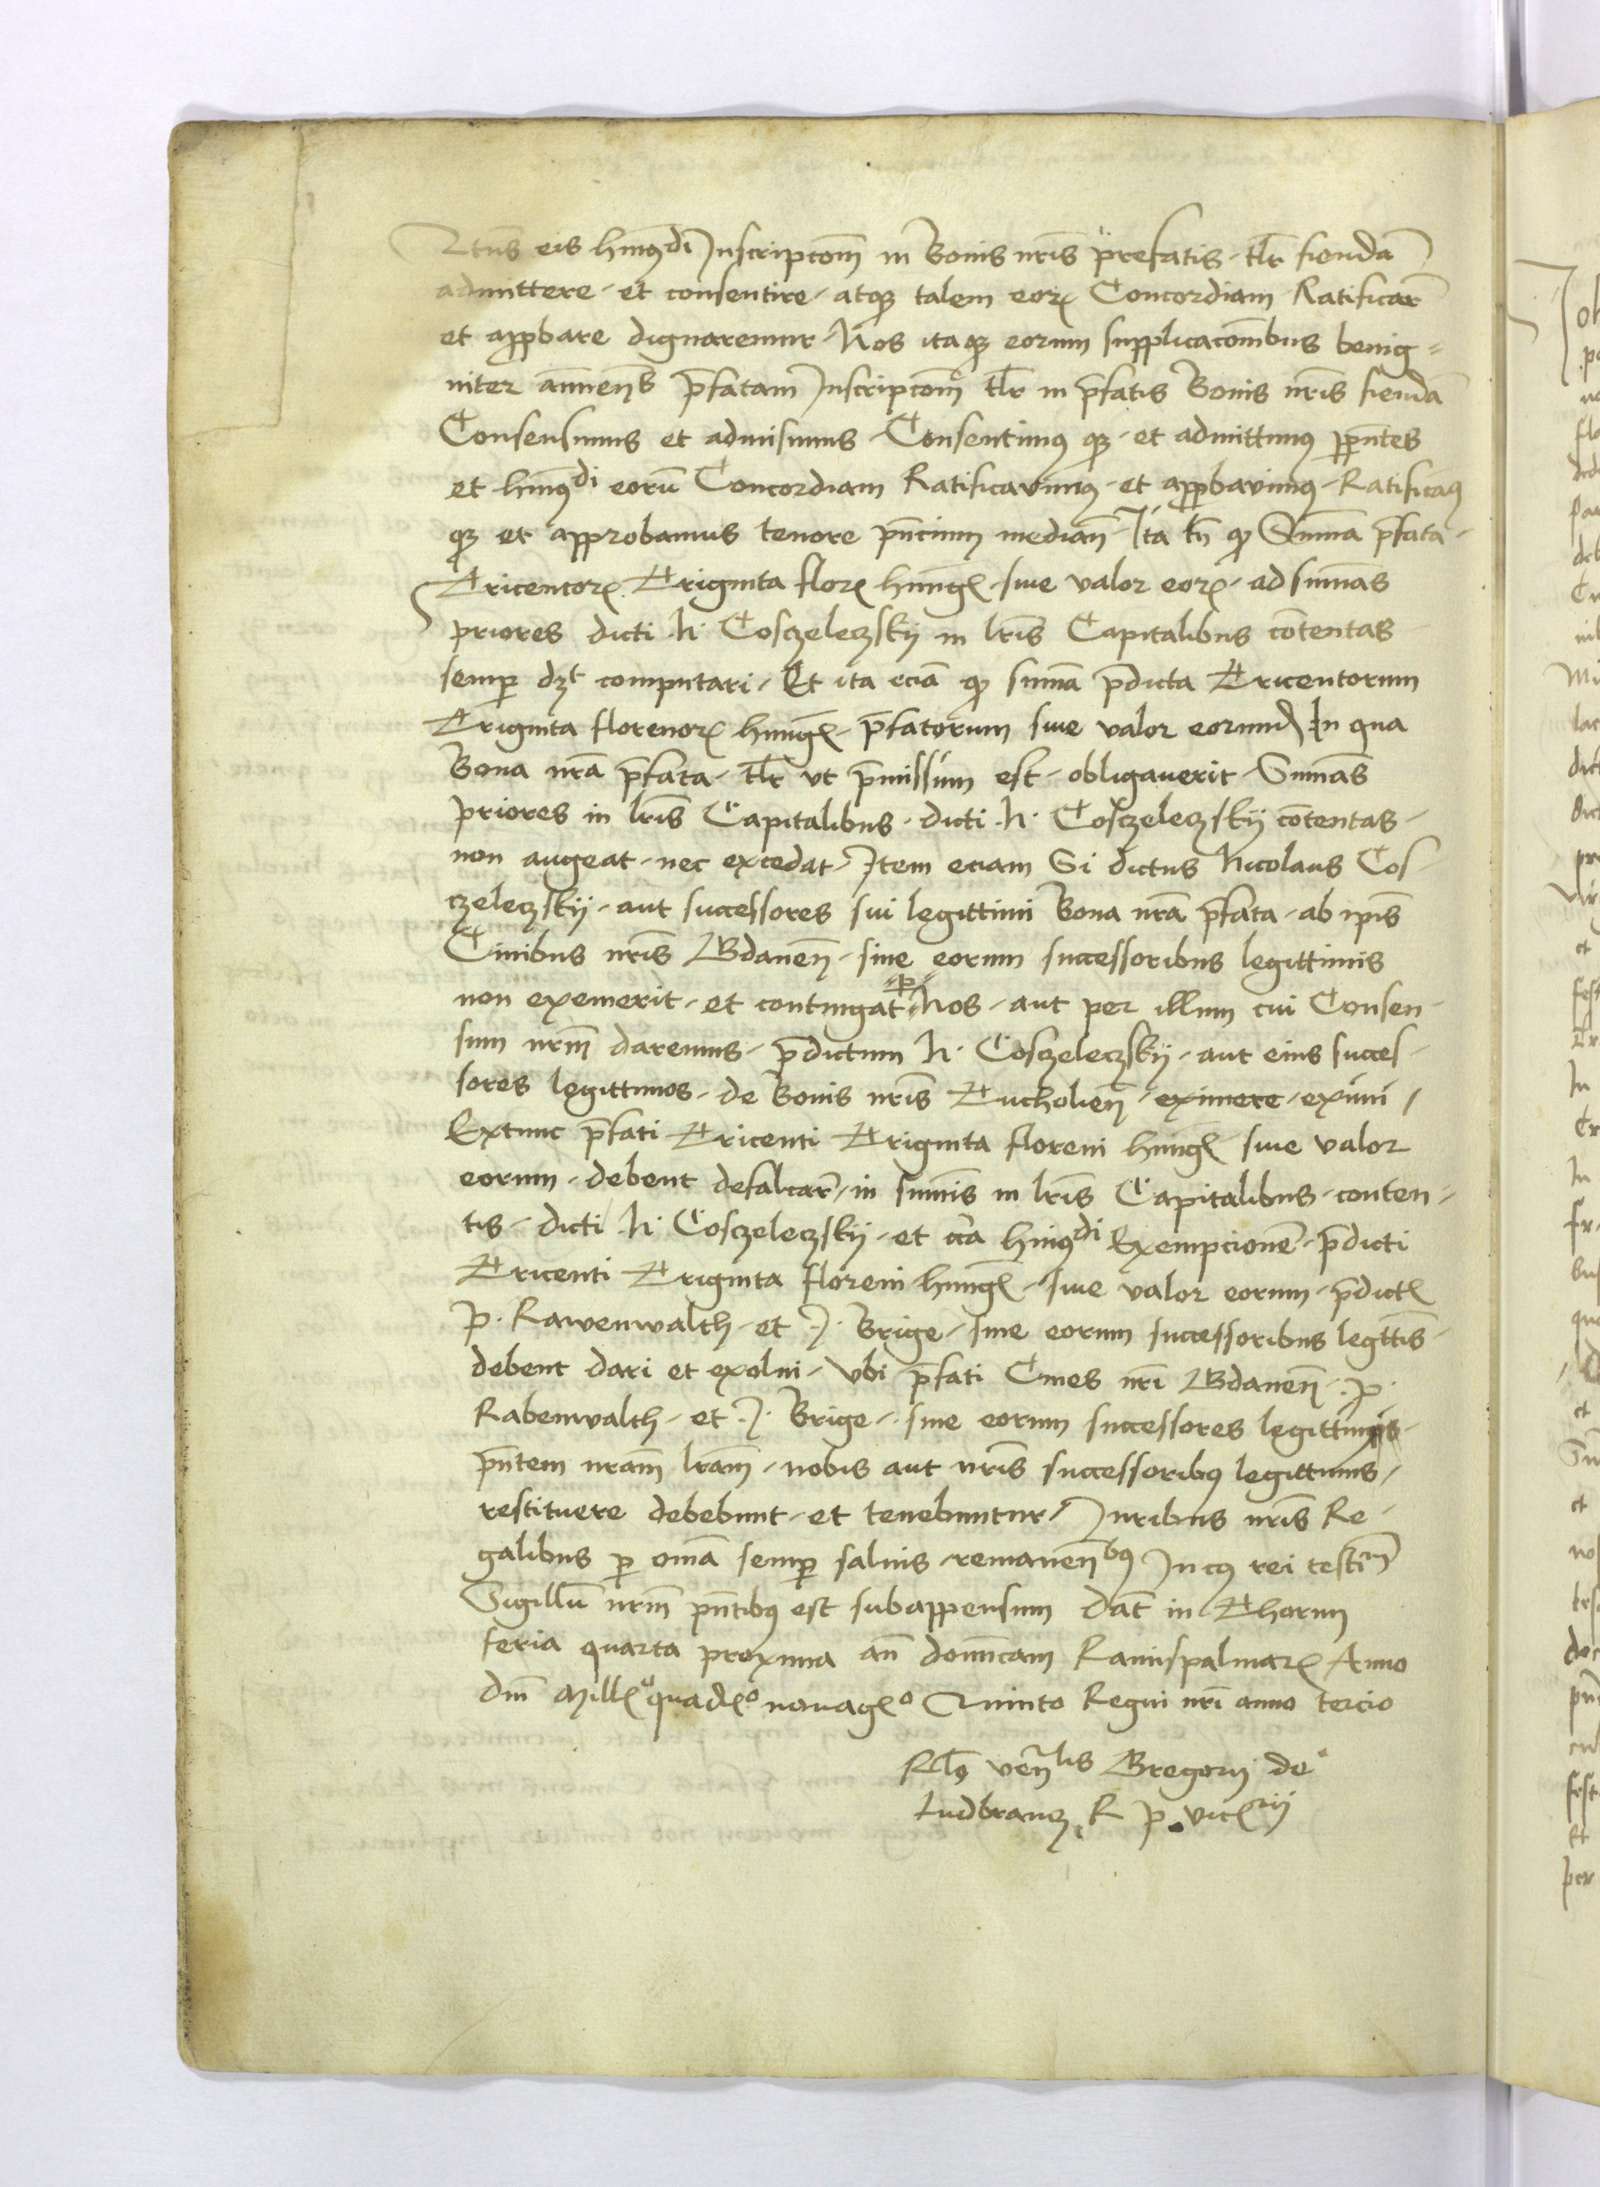 Qtus eis hmōdi Inscripcōm in Bonis nris prefatis tlr fiendā
admittere et consentire atqʒ talem eorꝫ Concordiam Ratificar̄
et appbare dignaremur Nos itaqʒ eorum supplicacōnibus benig=
niter annuen̄ p̄fatam Inscripcōm tlr in p̄fatis Bonis nris fiendā
Consensimus et admisimus Consentimꝰ qʒ et admittimꝰ pn̄tes
et hmōdi eorū Concordiam Ratificavimꝰ et appbavimꝰ Ratificamꝰ
qʒ et approbamus tenore pn̄cium median̄ Ita tn̄ qꝫ Summa p̄fata
Tricentorꝫ Triginta florꝫ hungꝫ siue valor eorꝫ ad sumās
priores dicti N Cosczeleczskij in lris Capitalibus cōtentas
semp dʒt computari Et ita eciā qꝫ sumā p̄dicta Tricentorum
Triginta florenorꝫ hungꝫ p̄fatorum siue valor eorund In qua
Bona nrā p̄fata tlr vt p̄missum est obligauerit Summās
priores in lris Capitalibus dicti N Cosczeleczskij cōtentas
non augeat nec excedat Item eciam Si dictus Nicolaus Cos
czeleczskij aut successores sui legittimi Bona nrā p̄fata ab ipis
Ciuibus nris Gdanen̄ siue eorum successoribus legittimis
non exemerit et contingat p Nos aut per illum cui Consen
sum nrm̄ daremus p̄dictum N Cosczeleczskij aut eius succes
sores legittimos de Bonis nris Tucholien̄ eximere eximi
Extunc p̄fati Tricenti Triginta floreni hungꝫ siue valor
eorum debent defalcar̄ in summis in lris Capitalibus conten
tis dicti N Cosczeleczskij et cc̄a hmōdi Exempcionē p̄dicti
Tricenti Triginta floreni hungꝫ siue valor eorum p̄dictꝫ
P Rawenwalth et J Brige siue eorum successoribus legttis
debent dari et exolui Vbi p̄fati Ciues nri Gdanen̄ P
Rabenwalth et J Brige siue eorum successores legittimis
pn̄tem nram̄ lram̄ nobis aut nris successoribꝰ legittimis
restituere debebunt et tenebuntur Iuribus nris Re
galibus p omā semp saluis remanen̄bꝰ In cꝰ rei testim̄
Sigillū nrm̄ pn̄tibꝰ est subappensum Dat in Thorun
feria quarta proxima an̄ dominicam Ramispalmarꝫ Anno
Dni Millꝫo quadꝫo nonagꝫo Quinto Regni nri anno tercio
Rlō ven̄lis Gregorij de
Ludbrancz R P vicꝫrij